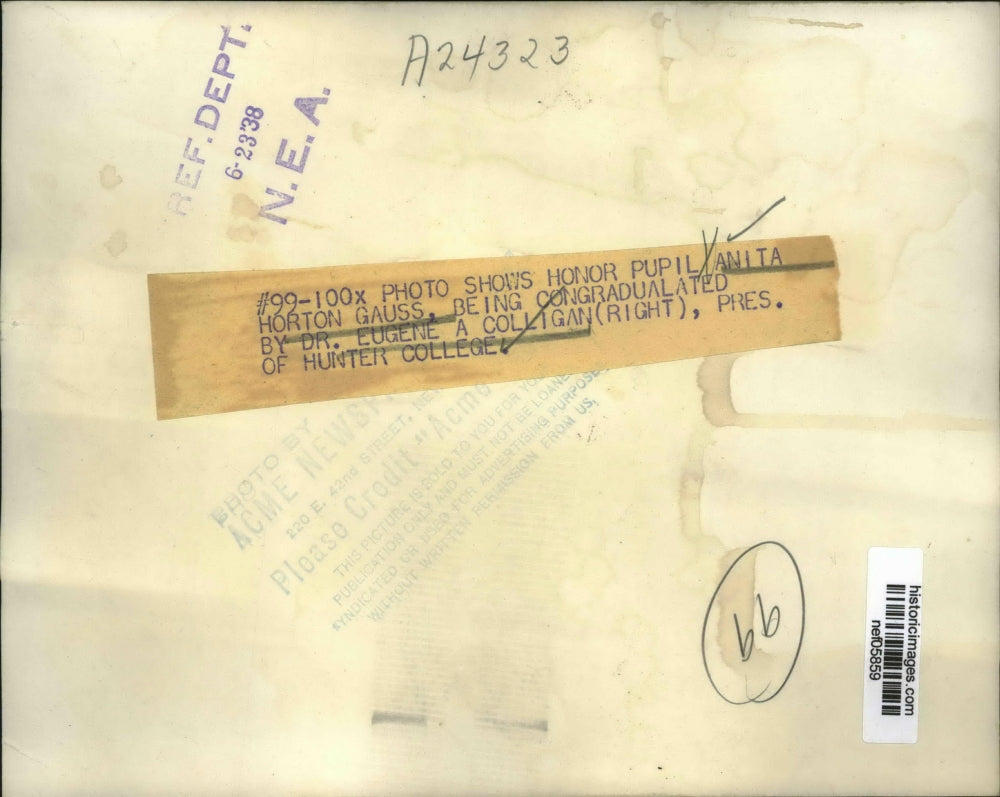 A24323
REF. DEPT.
6-23'38
N. E. A.
#99-100x PHOTO SHOWS HONOR PUPIL ANITA
HORTON GAUSS, BEING CONGRADUALATED
BY DR. EUGENE A COLLIGAN(RIGHT), PRES.
OF HUNTER COLLEGE.
PHOTO BY
ACME NEWSP
220 E. 42nd STREET,
Please Credit "Acme
THIS PICTURE IS SOLD TO YOU FOR YO
PUBLICATION ONLY AND MUST NOT BE LOANE
SYNDICATED OR USED FOR ADVERTISING PURPOSE
WITHOUT WRITTEN PERMISSION FROM US.
historicimages.com
nef05859